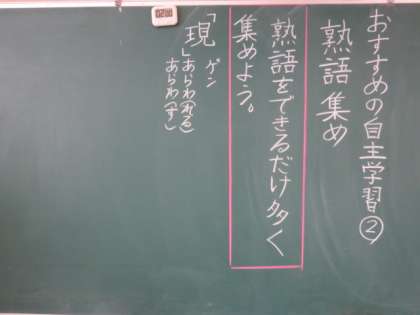 おすすめの自主学習②
熟語集め
熟語をできるだけ多く
集めよう。
「現」ゲン
あらわ(れる)
あらわ(す)